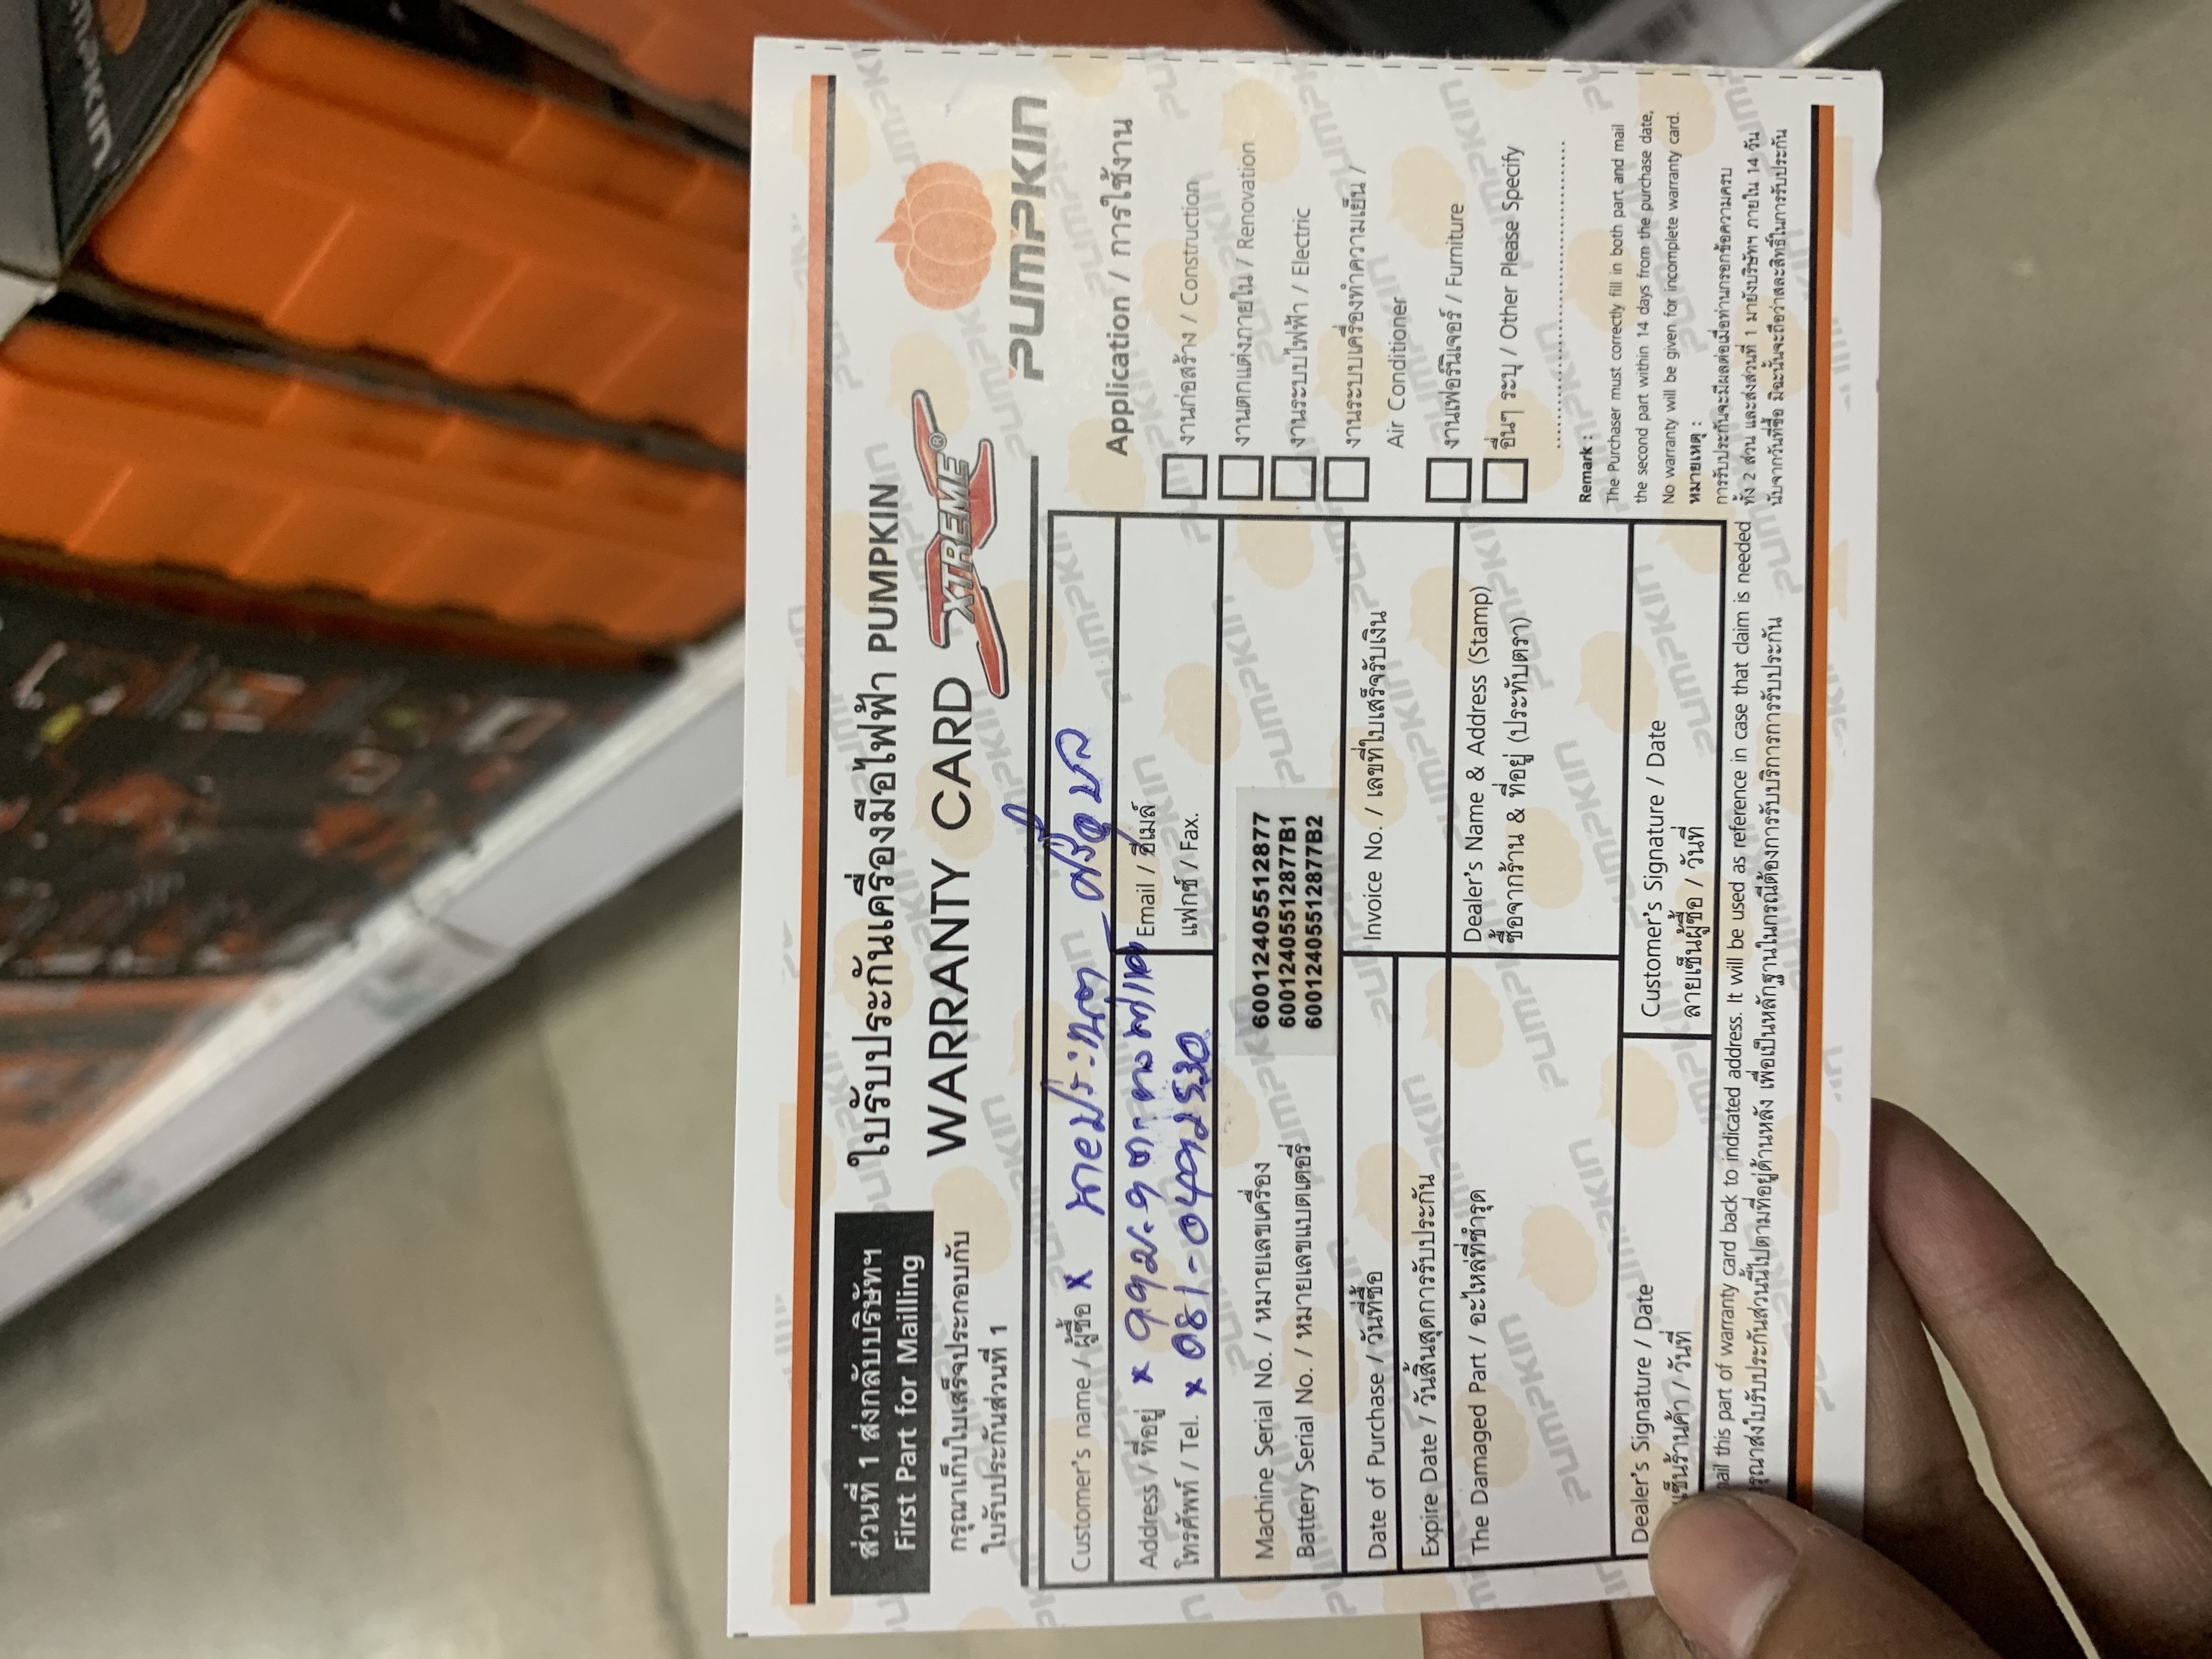 ส่วนที่ 1 ส่งกลับบริษัทฯ
First Part for Mailling
กรุณาเก็บใบเสร็จประกอบกับ
ใบรับประกันส่วนที่ 1
ใบรับประกันเครื่องมือไฟฟ้า PUMPKIN
WARRANTY CARD
XTREME®
PUMPKIN
Customer's name / ผู้ซื้อ x นายประ
Address / ที่อยู่ x 992.9
โทรศัพท์ / Tel. x 081-0499530
Email / อีเมล์
แฟกซ์ / Fax.
Machine Serial No. / หมายเลขเครื่อง
Battery Serial No. / หมายเลขแบตเตอรี่
6001240551 2877
6001240551 2877B1
6001240551 2877B2
Date of Purchase / วันที่ซื้อ
Invoice No. / เลขที่ใบเสร็จรับเงิน
Expire Date / วันสิ้นสุดการรับประกัน
The Damaged Part / อะไหล่ที่ชำรุด
Dealer's Name & Address (Stamp)
ซื้อจากร้าน & ที่อยู่ (ประทับตรา)
Dealer's Signature / Date
เซ็นร้านค้า / วันที่
Customer's Signature / Date
ลายเซ็นผู้ซื้อ / วันที่
Application / การใช้งาน
งานก่อสร้าง / Construction
งานตกแต่งภายใน / Renovation
งานระบบไฟฟ้า / Electric
งานระบบเครื่องทำความเย็น /
Air Conditioner
งานเฟอร์นิเจอร์ / Furniture
อื่นๆ ระบุ / Other Please Specify
Remark :
The Purchaser must correctly fill in both part and mail
the second part within 14 days from the purchase date,
No warranty will be given for incomplete warranty card.
หมายเหตุ :
การรับประกันจะมีผลต่อเมื่อท่านกรอกข้อความครบ
ทั้ง 2 ส่วน และส่งส่วนที่ 1 มายังบริษัทฯ ภายใน 14 วัน
นับจากวันที่ซื้อ มิฉะนั้นจะถือว่าสละสิทธิ์ในการรับประกัน
this part of warranty card back to indicated address. It will be used as reference in case that claim is needed
รุณาส่งใบรับประกันส่วนนี้ไปตามที่อยู่ด้านหลัง เพื่อเป็นหลักฐานในกรณีต้องการรับบริการการรับประกัน